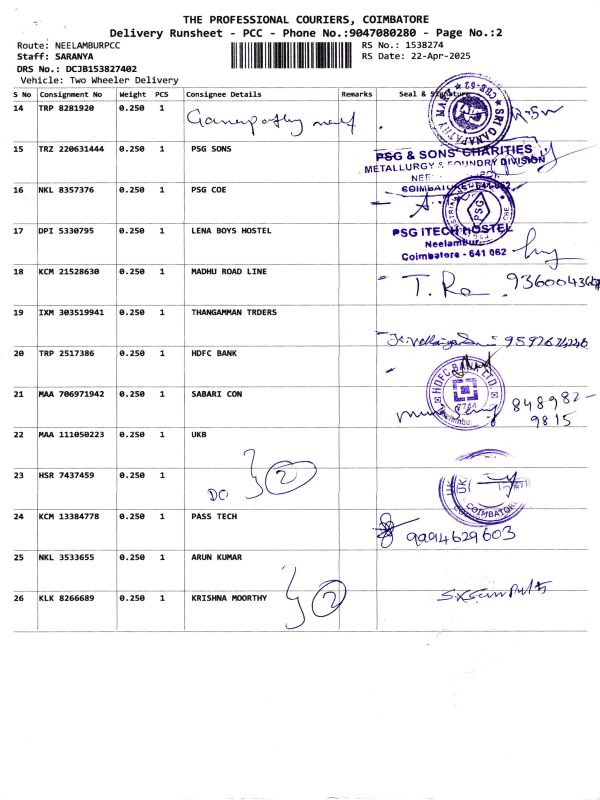 THE PROFESSIONAL COURIERS, COIMBATORE
Delivery Runsheet - PCC - Phone No.:9047080280 - Page No.:2
Route: NEELAMBURPCC
Staff: SARANYA
DRS No.: DCJB153827402
Vehicle: Two Wheeler Delivery
RS No.: 1538274
RS Date: 22-Apr-2025
S No Consignment No Weight PCS Consignee Details Remarks Seal & Signature
14 TRP 8281920 0.250 1
SRI GANAPATHY MART
15 TRZ 220631444 0.250 1 PSG SONS
PSG & SONS' CHARITIES
METALLURGY & FOUNDRY DIVISION
COIMBATORE - 641 062
16 NKL 8357376 0.250 1 PSG COE
PSG
17 DPI 5330795 0.250 1 LENA BOYS HOSTEL
PSG ITECH HOSTEL
Neelambur,
Coimbatore - 641 062
18 KCM 21528630 0.250 1 MADHU ROAD LINE
19 IXM 303519941 0.250 1 THANGAMMAN TRDERS
20 TRP 2517386 0.250 1 HDFC BANK
HDFC BANK LTD.
21 MAA 706971942 0.250 1 SABARI CON
848982-
9815
22 MAA 111050223 0.250 1 UKB
23 HSR 7437459 0.250 1
DC 2
COIMBATORE
24 KCM 13384778 0.250 1 PASS TECH
9994629603
25 NKL 3533655 0.250 1 ARUN KUMAR
26 KLK 8266689 0.250 1 KRISHNA MOORTHY
2